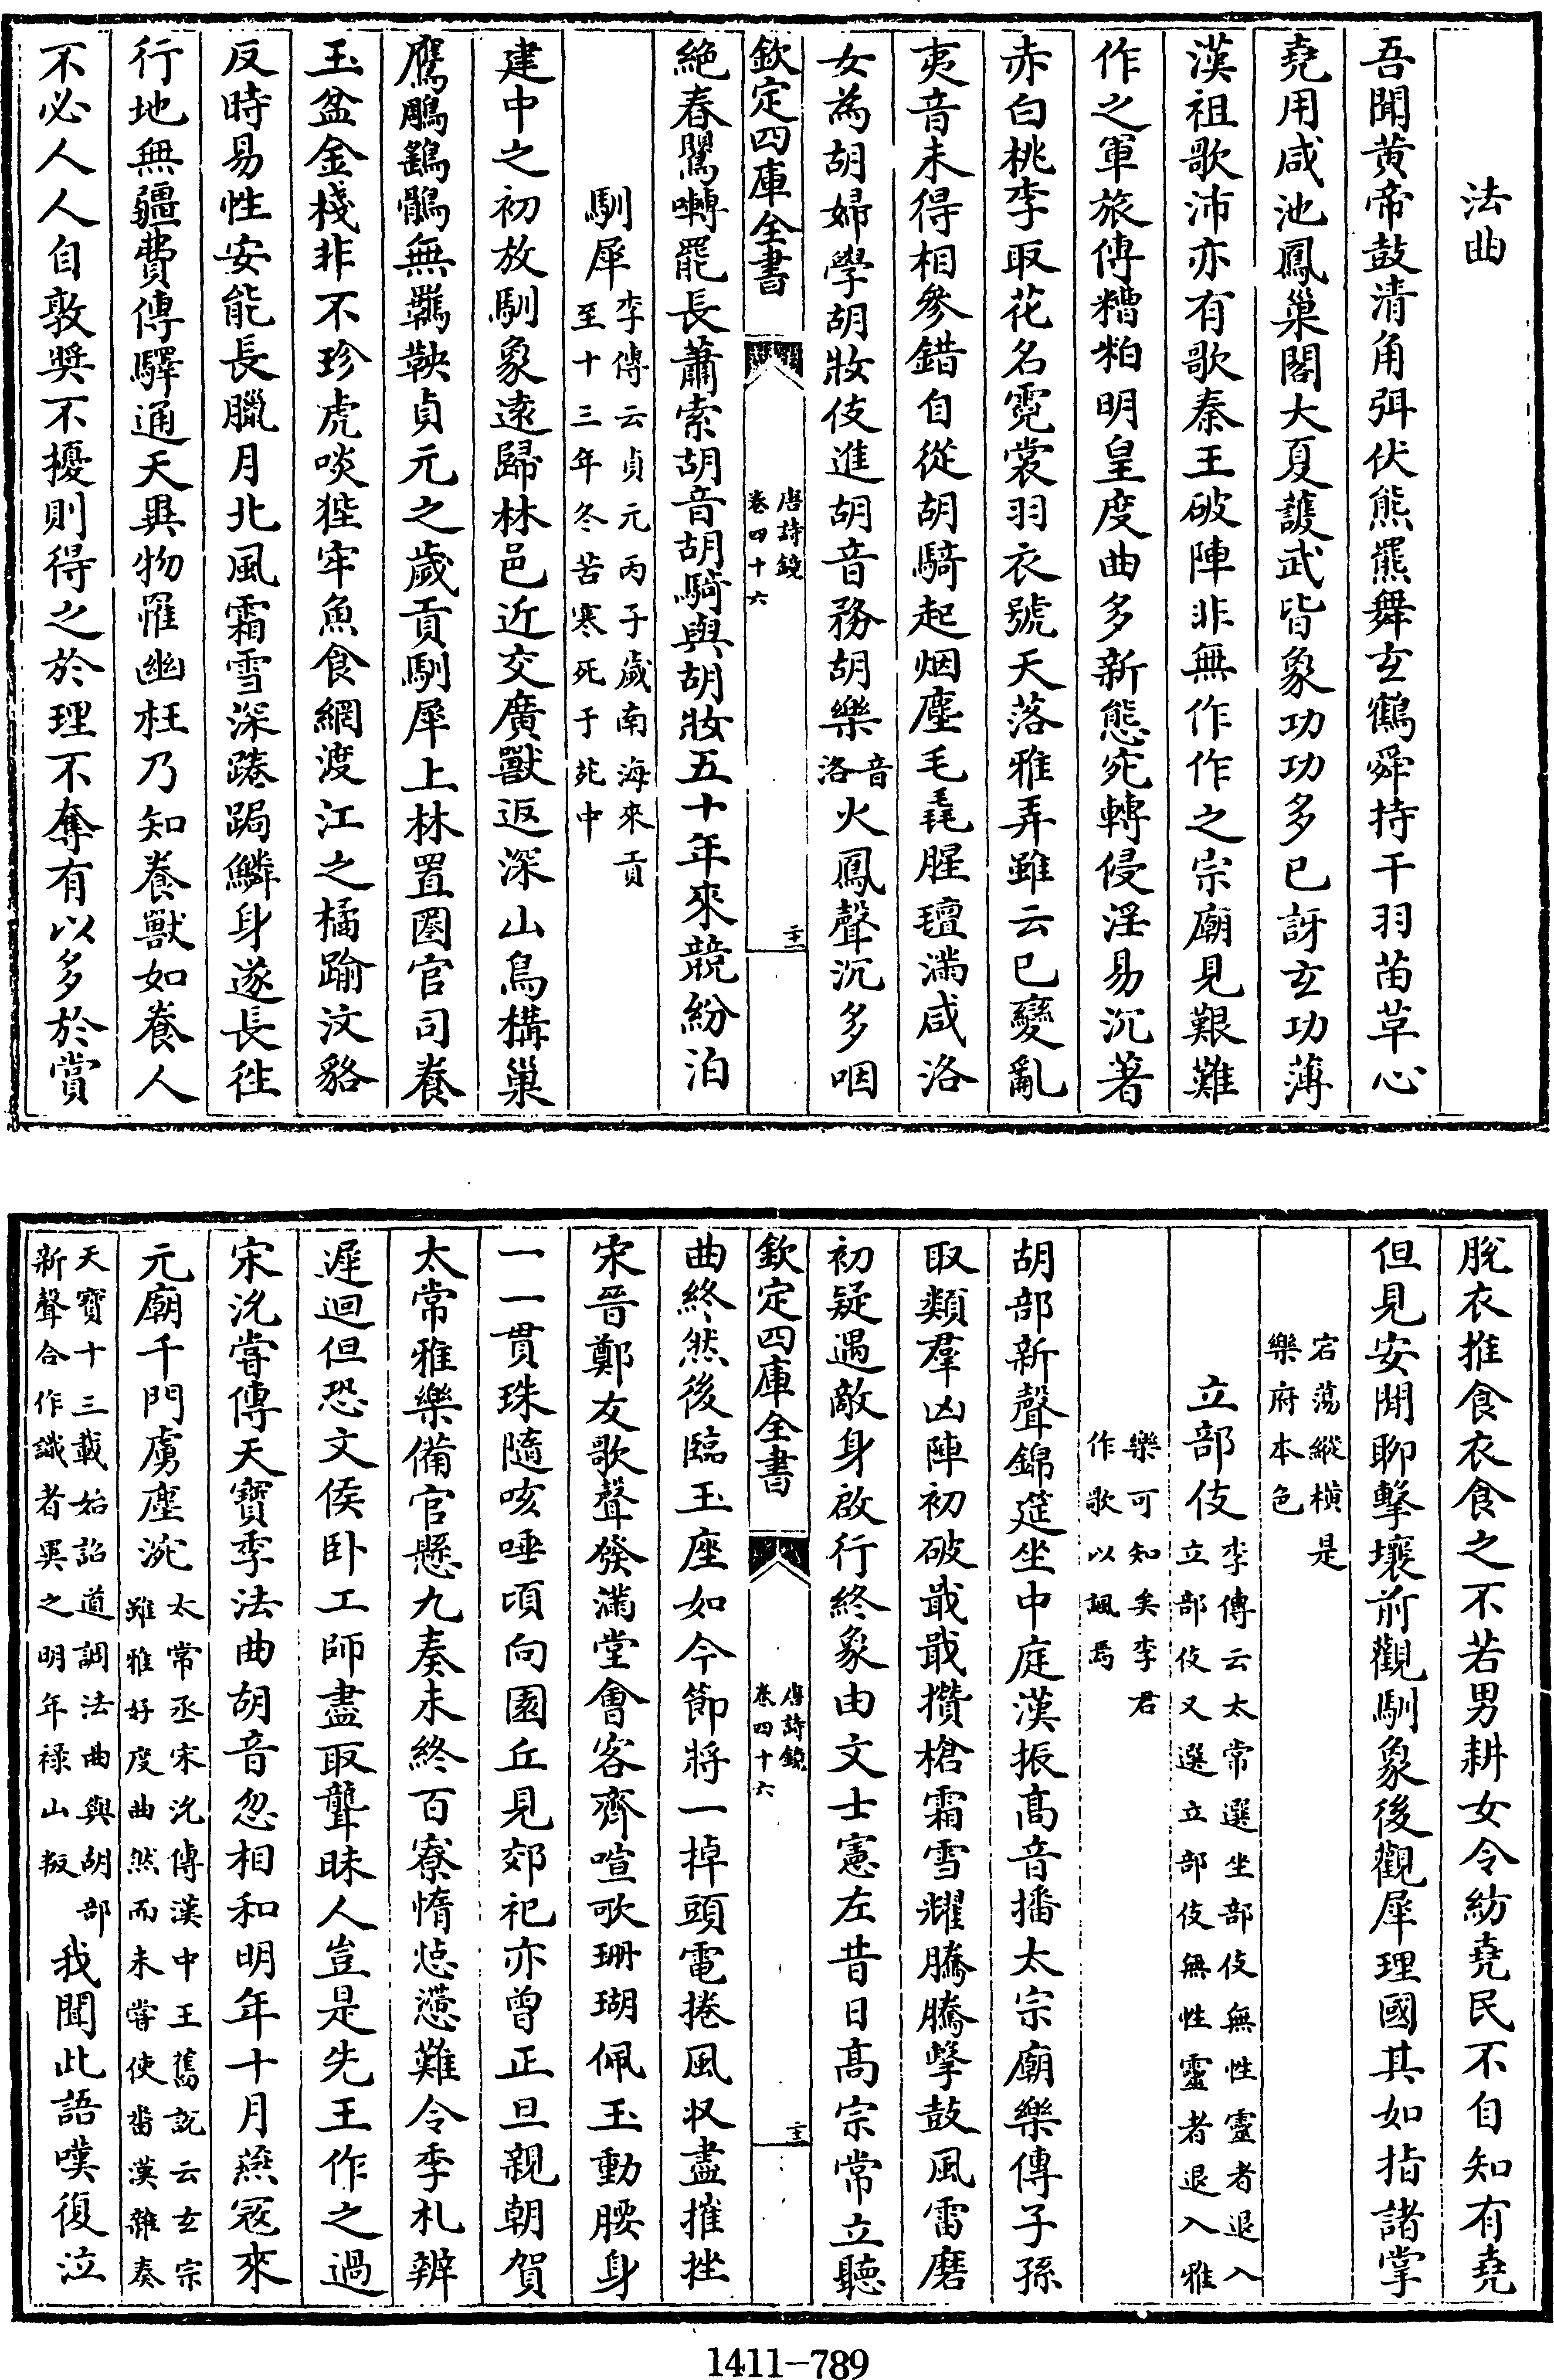 法曲
吾聞黄帝鼓清角弭伏熊羆舞玄鶴舜持干羽苗草心
堯用咸池鳳巢閣大夏頀武皆象功功多已訝玄功薄
漢祖歌沛亦有歌秦王破陣非無作作之宗廟見艱難
作之軍旅傳糟粕明皇度曲多新態宛轉侵淫易沉著
赤白桃李取花名霓裳羽衣號天落雅弄雖云已變亂
夷音未得相參錯自從胡騎起烟塵毛毳腥羶滿咸洛
女為胡婦學胡妝伎進胡音務胡樂音洛火鳳聲沉多咽
欽定四庫全書 唐詩鏡 卷四十六 二十二
絶春鶯囀罷長蕭索胡音胡騎與胡妝五十年來競紛泊
馴犀李傳云貞元丙子歲南海來貢
至十三年冬苦寒死于苑中
建中之初放馴象遠歸林邑近交廣獸返深山鳥構巢
鷹鵰鷂鶻無羈鞅貞元之歲貢馴犀上林置圈官司養
玉盆金棧非不珍虎啖狴牢魚食網渡江之橘踰汶貉
反時易性安能長臘月北風霜雪深踡跼鱗身遂長徃
行地無疆費傳驛通天異物罹幽枉乃知養獸如養人
不必人人自敦奬不擾則得之於理不奪有以多於賞
脫衣推食衣食之不若男耕女令紡堯民不自知有堯
但見安閒聊擊壤前觀馴象後觀犀理國其如指諸掌
宕蕩縱横是
樂府本色
立部伎李傳云太常選坐部伎無性靈者退入
立部伎又選立部伎無性靈者退入雅
樂可知矣李君
作歌以諷焉
胡部新聲錦筵坐中庭漢振髙音播太宗廟樂傳子孫
取類羣凶陣初破戢戢攢槍霜雪耀騰騰擊鼓風雷磨
初疑遇敵身啟行終象由文士憲左昔日髙宗常立聽
欽定四庫全書 唐詩鏡 卷四十六 二十三
曲終然後臨玉座如今節將一掉頭電捲風收盡摧挫
宋晉鄭友歌聲發滿堂會客齊喧歌珊瑚佩玉動腰身
一一貫珠隨咳唾頃向圜丘見郊祀亦曾正旦親朝賀
太常雅樂備官懸九奏未終百寮惰惉懘難令季札辨
遲迴但恐文侯卧工師盡取聾昧人豈是先王作之過
宋沇嘗傳天寶季法曲胡音忽相和明年十月燕冦來
元廟千門虜塵涴太常丞宋沇傳漢中王舊説云玄宗
雖雅好度曲然而未嘗使畨漢雜奏
天寶十三載始詔道調法曲與胡部
新聲合作識者異之明年禄山叛我聞此語嘆復泣
1411-789